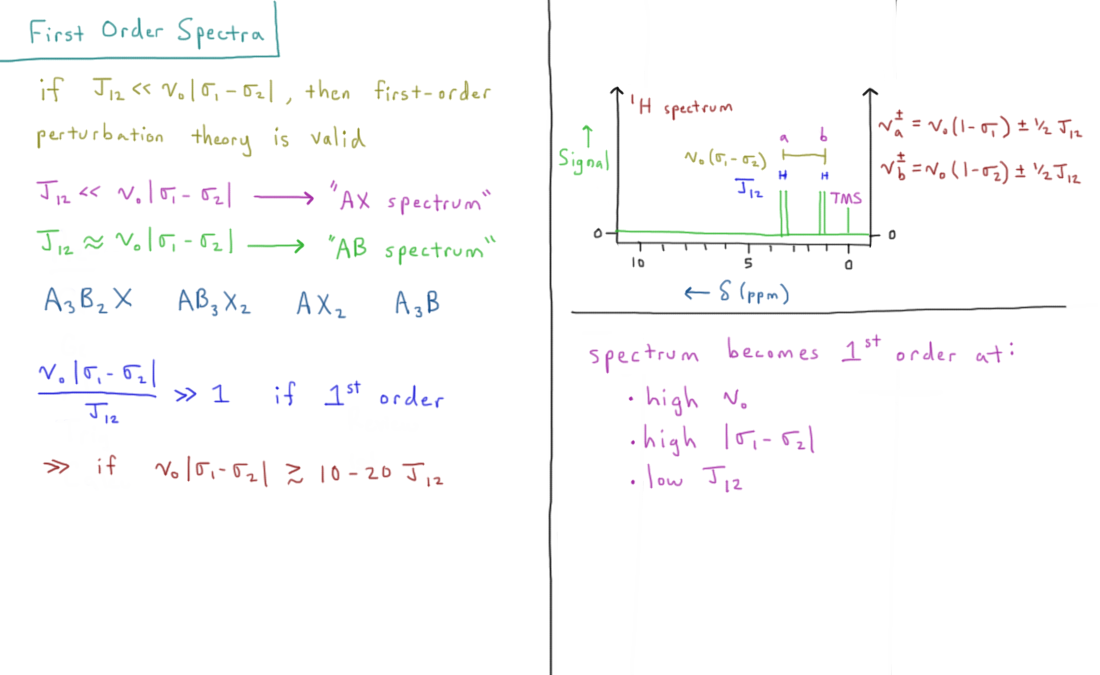 First Order Spectra
if J₁₂ << ν₀|σ₁ - σ₂|, then first-order
perturbation theory is valid
J₁₂ << ν₀|σ₁ - σ₂| ⟶ "AX spectrum"
J₁₂ ≈ ν₀|σ₁ - σ₂| ⟶ "AB spectrum"
A₃B₂X AB₃X₂ AX₂ A₃B
ν₀|σ₁ - σ₂| / J₁₂ >> 1 if 1ˢᵗ order
>> if ν₀|σ₁ - σ₂| ≳ 10-20 J₁₂
¹H spectrum
↑
Signal
a b
ν₀(σ₁ - σ₂)
J₁₂
H H
TMS
0 0
10 5 0
← δ (ppm)
νₐ± = ν₀(1 - σ₁) ± ½ J₁₂
ν_b± = ν₀(1 - σ₂) ± ½ J₁₂
spectrum becomes 1ˢᵗ order at:
• high ν₀
• high |σ₁ - σ₂|
• low J₁₂